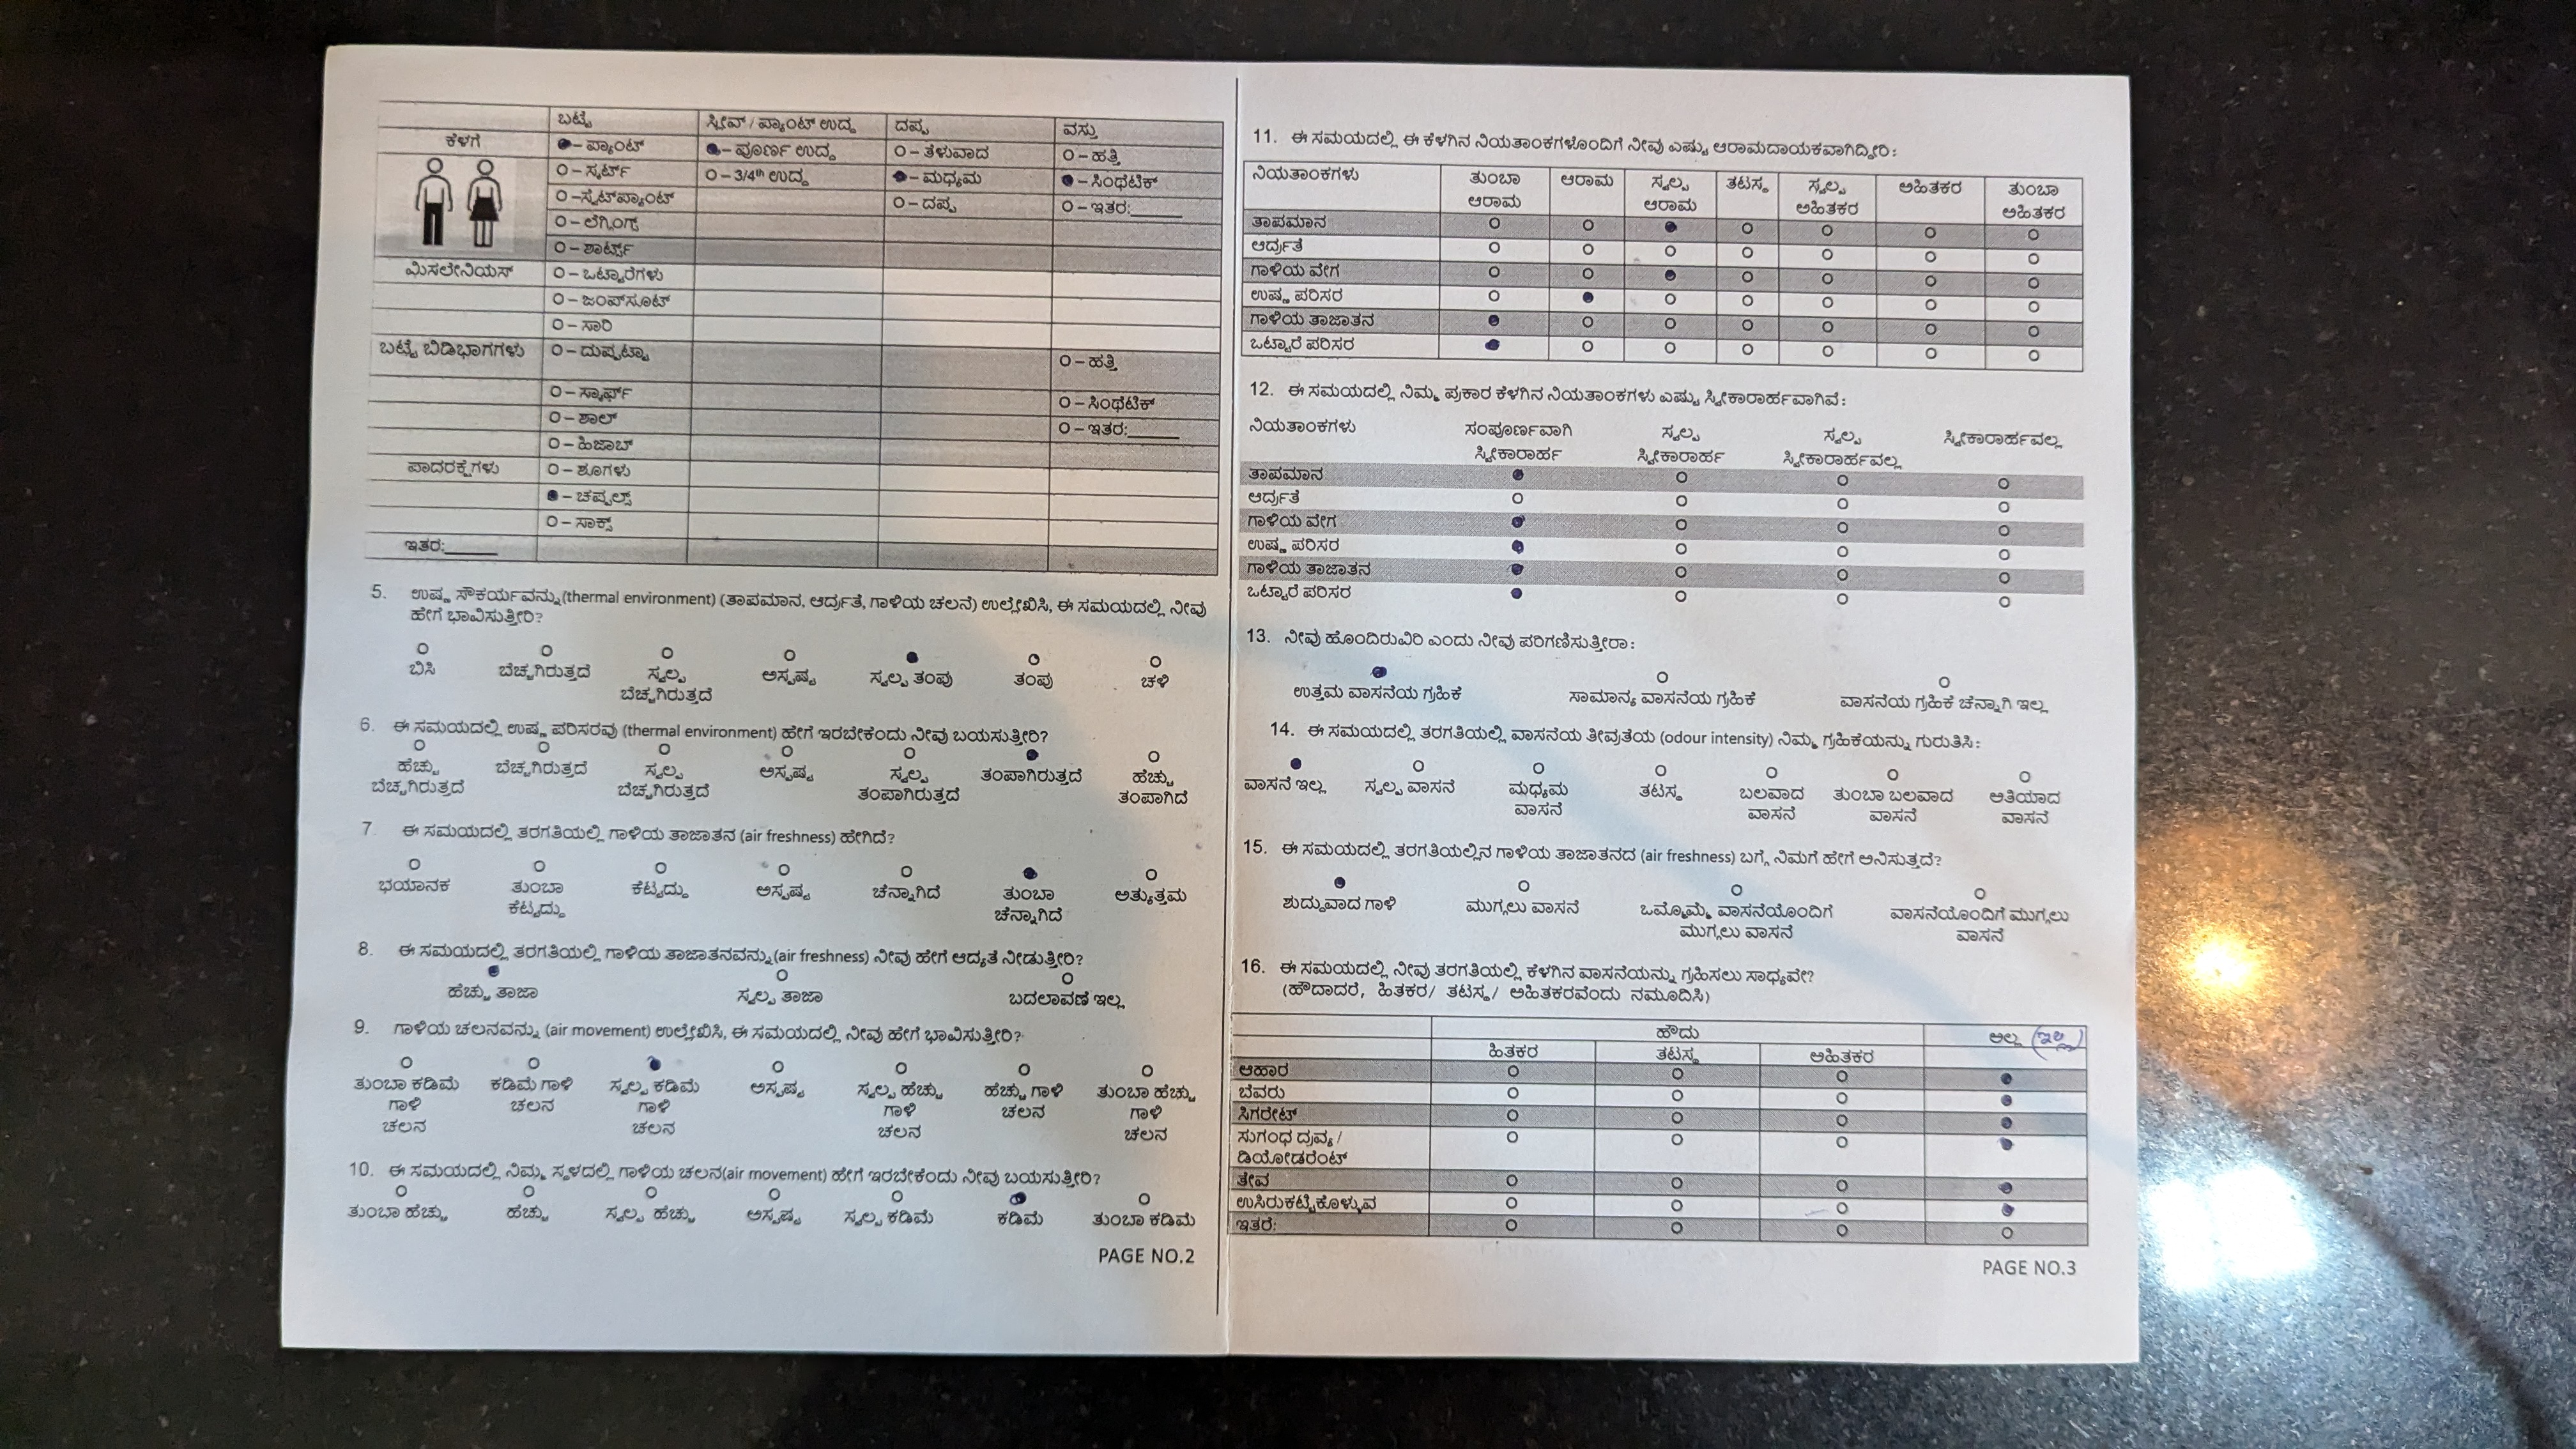 ಬಟ್ಟೆ ಸ್ಲೀವ್ / ಪ್ಯಾಂಟ್ ಉದ್ದ ದಪ್ಪ ವಸ್ತು
ಕೆಳಗೆ ●– ಪ್ಯಾಂಟ್ ●– ಪೂರ್ಣ ಉದ್ದ O – ತೆಳುವಾದ O – ಹತ್ತಿ
O – ಸ್ಕರ್ಟ್ O – 3/4th ಉದ್ದ ●– ಮಧ್ಯಮ ●– ಸಿಂಥೆಟಿಕ್
O –ಸ್ವೆಟ್‌ಪ್ಯಾಂಟ್ O – ದಪ್ಪ O – ಇತರ:______
O – ಲೆಗ್ಗಿಂಗ್ಸ್
O – ಶಾರ್ಟ್ಸ್
ಮಿಸಲೇನಿಯಸ್ O – ಒಟ್ಟಾರೆಗಳು
O – ಜಂಪ್‌ಸೂಟ್
O – ಸಾರಿ
ಬಟ್ಟೆ ಬಿಡಿಭಾಗಗಳು O – ದುಪ್ಪಟ್ಟಾ O – ಹತ್ತಿ
O – ಸ್ಕಾರ್ಫ್ O – ಸಿಂಥೆಟಿಕ್
O – ಶಾಲ್ O – ಇತರ:______
O – ಹಿಜಾಬ್
ಪಾದರಕ್ಷೆಗಳು O – ಶೂಗಳು
●– ಚಪ್ಪಲ್ಸ್
O – ಸಾಕ್ಸ್
ಇತರ:______
5. ಉಷ್ಣ ಸೌಕರ್ಯವನ್ನು(thermal environment) (ತಾಪಮಾನ, ಆರ್ದ್ರತೆ, ಗಾಳಿಯ ಚಲನೆ) ಉಲ್ಲೇಖಿಸಿ, ಈ ಸಮಯದಲ್ಲಿ ನೀವು
ಹೇಗೆ ಭಾವಿಸುತ್ತೀರಿ?
O O O O ● O O
ಬಿಸಿ ಬೆಚ್ಚಗಿರುತ್ತದೆ ಸ್ವಲ್ಪ ಅಸ್ಪಷ್ಟ ಸ್ವಲ್ಪ ತಂಪು ತಂಪು ಚಳಿ
ಬೆಚ್ಚಗಿರುತ್ತದೆ
6. ಈ ಸಮಯದಲ್ಲಿ ಉಷ್ಣ ಪರಿಸರವು (thermal environment) ಹೇಗೆ ಇರಬೇಕೆಂದು ನೀವು ಬಯಸುತ್ತೀರಿ?
O O O O O ● O
ಹೆಚ್ಚು ಬೆಚ್ಚಗಿರುತ್ತದೆ ಸ್ವಲ್ಪ ಅಸ್ಪಷ್ಟ ಸ್ವಲ್ಪ ತಂಪಾಗಿರುತ್ತದೆ ಹೆಚ್ಚು
ಬೆಚ್ಚಗಿರುತ್ತದೆ ಬೆಚ್ಚಗಿರುತ್ತದೆ ತಂಪಾಗಿರುತ್ತದೆ ತಂಪಾಗಿದೆ
7. ಈ ಸಮಯದಲ್ಲಿ ತರಗತಿಯಲ್ಲಿ ಗಾಳಿಯ ತಾಜಾತನ (air freshness) ಹೇಗಿದೆ?
O O O O O ● O
ಭಯಾನಕ ತುಂಬಾ ಕೆಟ್ಟದ್ದು ಅಸ್ಪಷ್ಟ ಚೆನ್ನಾಗಿದೆ ತುಂಬಾ ಅತ್ಯುತ್ತಮ
ಕೆಟ್ಟದ್ದು ಚೆನ್ನಾಗಿದೆ
8. ಈ ಸಮಯದಲ್ಲಿ ತರಗತಿಯಲ್ಲಿ ಗಾಳಿಯ ತಾಜಾತನವನ್ನು(air freshness) ನೀವು ಹೇಗೆ ಆದ್ಯತೆ ನೀಡುತ್ತೀರಿ?
● O O
ಹೆಚ್ಚು ತಾಜಾ ಸ್ವಲ್ಪ ತಾಜಾ ಬದಲಾವಣೆ ಇಲ್ಲ
9. ಗಾಳಿಯ ಚಲನವನ್ನು (air movement) ಉಲ್ಲೇಖಿಸಿ, ಈ ಸಮಯದಲ್ಲಿ ನೀವು ಹೇಗೆ ಭಾವಿಸುತ್ತೀರಿ?
O O ● O O O O
ತುಂಬಾ ಕಡಿಮೆ ಕಡಿಮೆ ಗಾಳಿ ಸ್ವಲ್ಪ ಕಡಿಮೆ ಅಸ್ಪಷ್ಟ ಸ್ವಲ್ಪ ಹೆಚ್ಚು ಹೆಚ್ಚು ಗಾಳಿ ತುಂಬಾ ಹೆಚ್ಚು
ಗಾಳಿ ಚಲನ ಗಾಳಿ ಗಾಳಿ ಚಲನ ಗಾಳಿ
ಚಲನ ಚಲನ ಚಲನ ಚಲನ
10. ಈ ಸಮಯದಲ್ಲಿ ನಿಮ್ಮ ಸ್ಥಳದಲ್ಲಿ ಗಾಳಿಯ ಚಲನ(air movement) ಹೇಗೆ ಇರಬೇಕೆಂದು ನೀವು ಬಯಸುತ್ತೀರಿ?
O O O O O ● O
ತುಂಬಾ ಹೆಚ್ಚು ಹೆಚ್ಚು ಸ್ವಲ್ಪ ಹೆಚ್ಚು ಅಸ್ಪಷ್ಟ ಸ್ವಲ್ಪ ಕಡಿಮೆ ಕಡಿಮೆ ತುಂಬಾ ಕಡಿಮೆ
PAGE NO.2
11. ಈ ಸಮಯದಲ್ಲಿ ಈ ಕೆಳಗಿನ ನಿಯತಾಂಕಗಳೊಂದಿಗೆ ನೀವು ಎಷ್ಟು ಆರಾಮದಾಯಕವಾಗಿದ್ದೀರಿ:
ನಿಯತಾಂಕಗಳು ತುಂಬಾ ಆರಾಮ ಸ್ವಲ್ಪ ತಟಸ್ಥ ಸ್ವಲ್ಪ ಅಹಿತಕರ ತುಂಬಾ
ಆರಾಮ ಆರಾಮ ಅಹಿತಕರ ಅಹಿತಕರ
ತಾಪಮಾನ O O ● O O O O
ಆರ್ದ್ರತೆ O O O O O O O
ಗಾಳಿಯ ವೇಗ O O ● O O O O
ಉಷ್ಣ ಪರಿಸರ O ● O O O O O
ಗಾಳಿಯ ತಾಜಾತನ ● O O O O O O
ಒಟ್ಟಾರೆ ಪರಿಸರ ● O O O O O O
12. ಈ ಸಮಯದಲ್ಲಿ ನಿಮ್ಮ ಪ್ರಕಾರ ಕೆಳಗಿನ ನಿಯತಾಂಕಗಳು ಎಷ್ಟು ಸ್ವೀಕಾರಾರ್ಹವಾಗಿವೆ:
ನಿಯತಾಂಕಗಳು ಸಂಪೂರ್ಣವಾಗಿ ಸ್ವಲ್ಪ ಸ್ವಲ್ಪ ಸ್ವೀಕಾರಾರ್ಹವಲ್ಲ
ಸ್ವೀಕಾರಾರ್ಹ ಸ್ವೀಕಾರಾರ್ಹ ಸ್ವೀಕಾರಾರ್ಹವಲ್ಲ
ತಾಪಮಾನ ● O O O
ಆರ್ದ್ರತೆ O O O O
ಗಾಳಿಯ ವೇಗ ● O O O
ಉಷ್ಣ ಪರಿಸರ ● O O O
ಗಾಳಿಯ ತಾಜಾತನ ● O O O
ಒಟ್ಟಾರೆ ಪರಿಸರ ● O O O
13. ನೀವು ಹೊಂದಿರುವಿರಿ ಎಂದು ನೀವು ಪರಿಗಣಿಸುತ್ತೀರಾ:
● O O
ಉತ್ತಮ ವಾಸನೆಯ ಗ್ರಹಿಕೆ ಸಾಮಾನ್ಯ ವಾಸನೆಯ ಗ್ರಹಿಕೆ ವಾಸನೆಯ ಗ್ರಹಿಕೆ ಚೆನ್ನಾಗಿ ಇಲ್ಲ
14. ಈ ಸಮಯದಲ್ಲಿ ತರಗತಿಯಲ್ಲಿ ವಾಸನೆಯ ತೀವ್ರತೆಯ (odour intensity) ನಿಮ್ಮ ಗ್ರಹಿಕೆಯನ್ನು ಗುರುತಿಸಿ:
● O O O O O O
ವಾಸನೆ ಇಲ್ಲ ಸ್ವಲ್ಪ ವಾಸನೆ ಮಧ್ಯಮ ತಟಸ್ಥ ಬಲವಾದ ತುಂಬಾ ಬಲವಾದ ಅತಿಯಾದ
ವಾಸನೆ ವಾಸನೆ ವಾಸನೆ ವಾಸನೆ
15. ಈ ಸಮಯದಲ್ಲಿ ತರಗತಿಯಲ್ಲಿನ ಗಾಳಿಯ ತಾಜಾತನದ (air freshness) ಬಗ್ಗೆ ನಿಮಗೆ ಹೇಗೆ ಅನಿಸುತ್ತದೆ?
● O O O
ಶುದ್ಧವಾದ ಗಾಳಿ ಮುಗ್ಗಲು ವಾಸನೆ ಒಮ್ಮೊಮ್ಮೆ ವಾಸನೆಯೊಂದಿಗೆ ವಾಸನೆಯೊಂದಿಗೆ ಮುಗ್ಗಲು
ಮುಗ್ಗಲು ವಾಸನೆ ವಾಸನೆ
16. ಈ ಸಮಯದಲ್ಲಿ ನೀವು ತರಗತಿಯಲ್ಲಿ ಕೆಳಗಿನ ವಾಸನೆಯನ್ನು ಗ್ರಹಿಸಲು ಸಾಧ್ಯವೇ?
(ಹೌದಾದರೆ, ಹಿತಕರ/ ತಟಸ್ಥ/ ಅಹಿತಕರವೆಂದು ನಮೂದಿಸಿ)
ಹೌದು ಅಲ್ಲ (ಇಲ್ಲ)
ಹಿತಕರ ತಟಸ್ಥ ಅಹಿತಕರ
ಆಹಾರ O O O ●
ಬೆವರು O O O ●
ಸಿಗರೇಟ್ O O O ●
ಸುಗಂಧ ದ್ರವ್ಯ / O O O ●
ಡಿಯೋಡರೆಂಟ್
ತೇವ O O O ●
ಉಸಿರುಕಟ್ಟಿಕೊಳ್ಳುವ O O O ●
ಇತರೆ: O O O O
PAGE NO.3